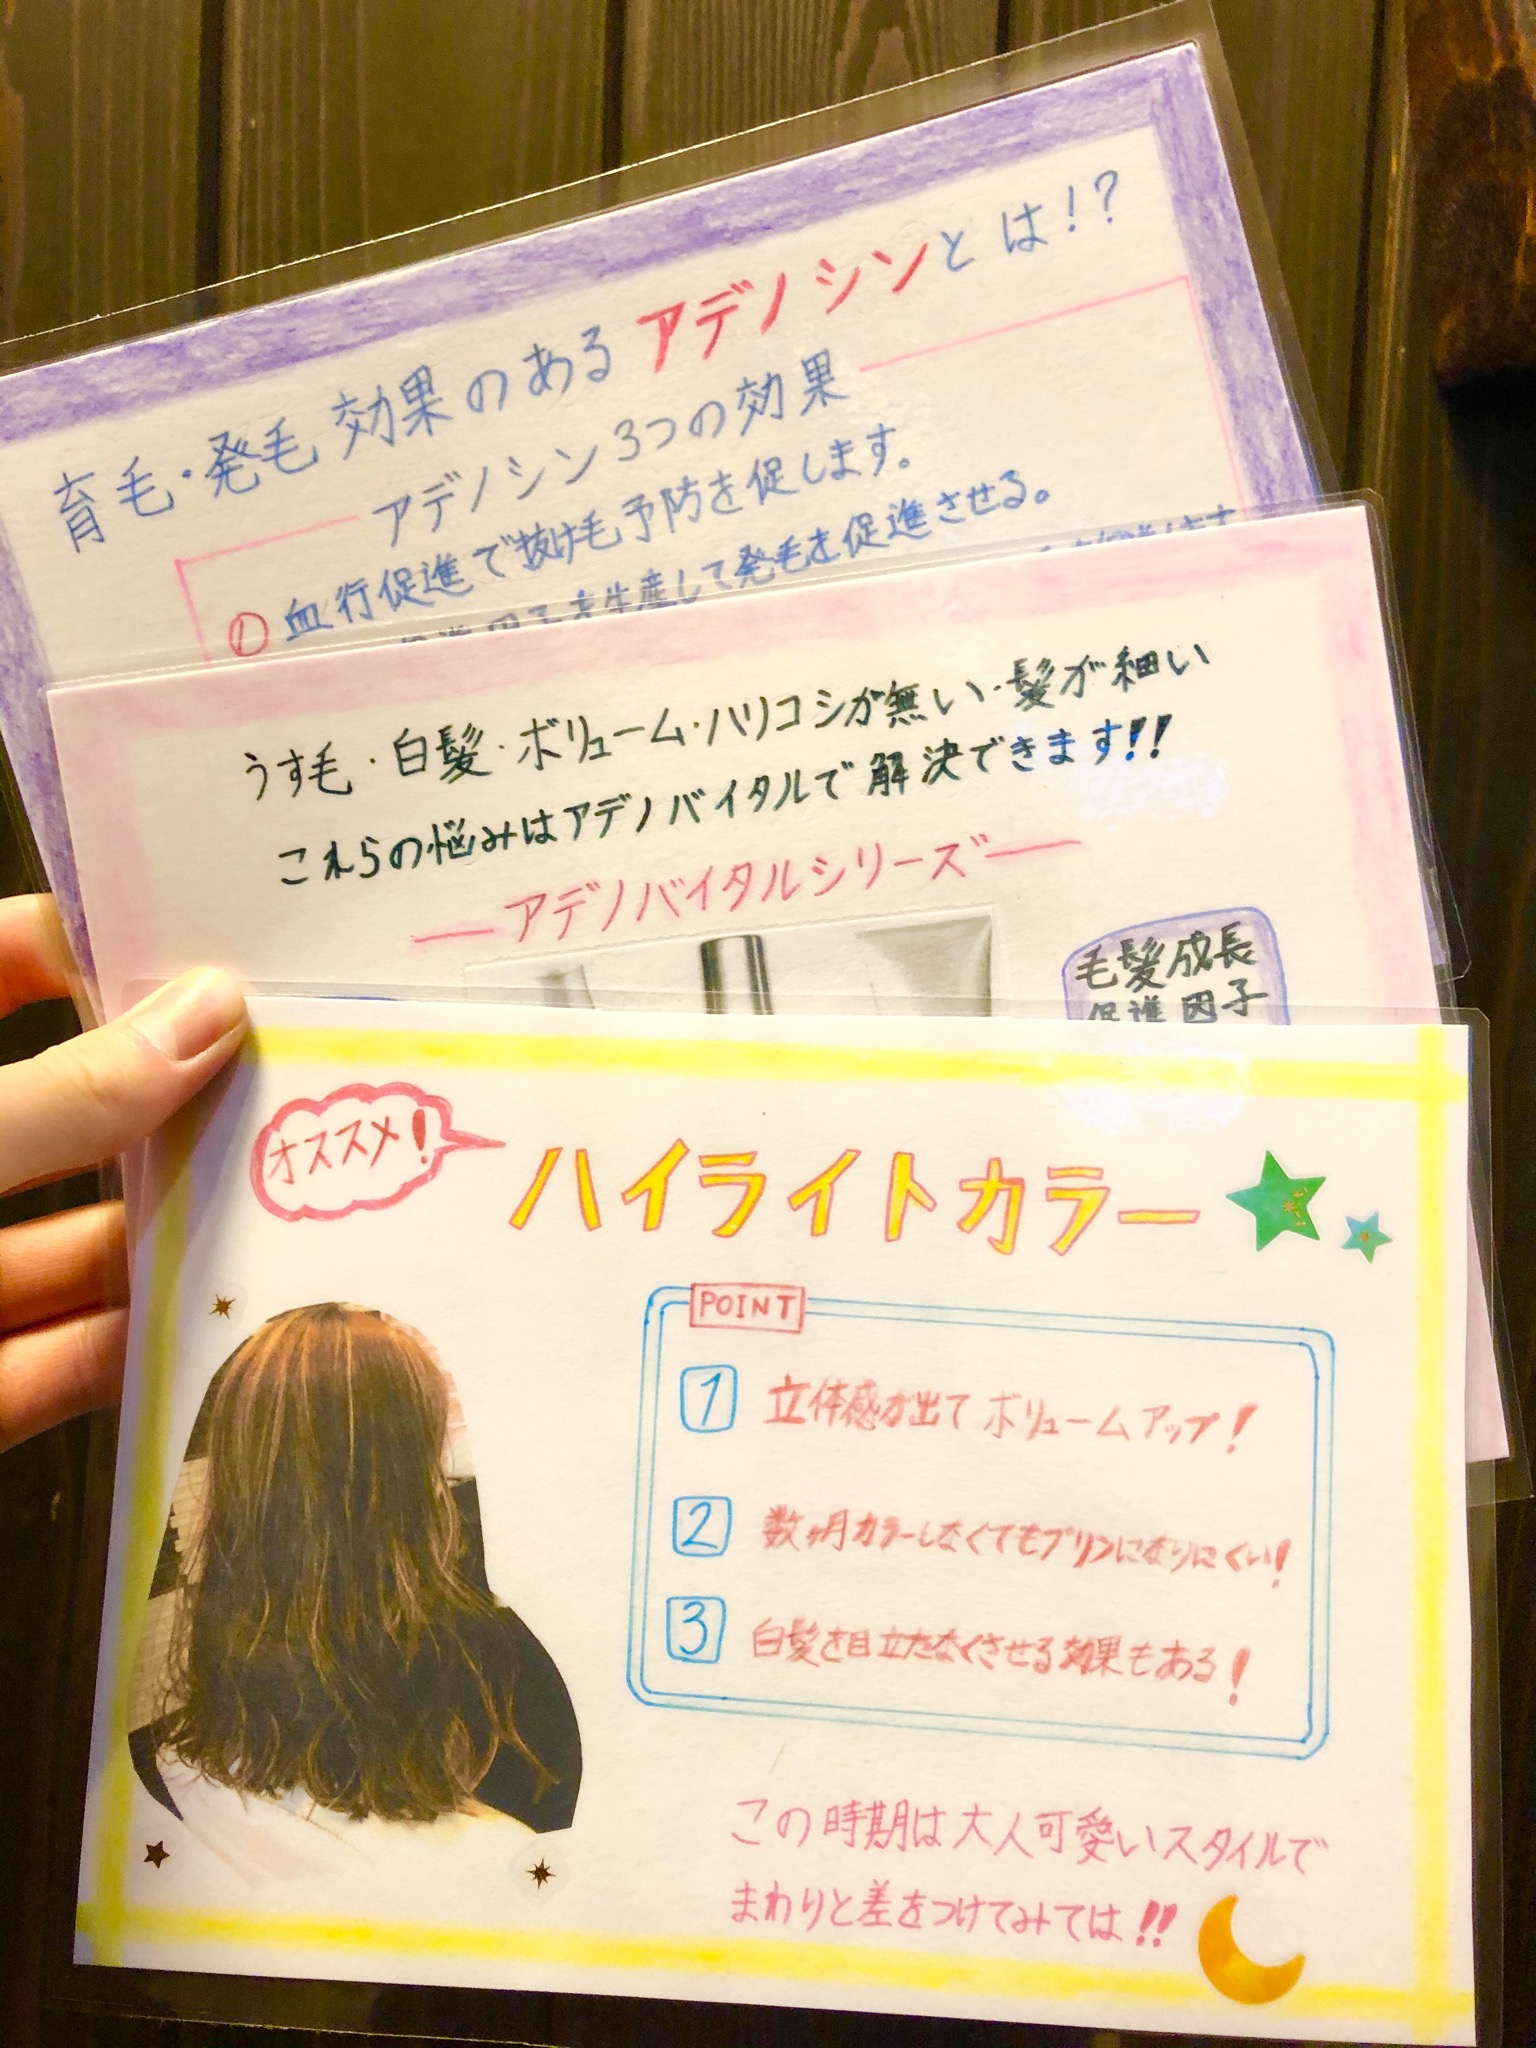 育毛・発毛効果のあるアデノシンとは!?
アデノシン3つの効果
① 血行促進で抜け毛予防を促します。
を生産して発毛を促進させる。
うす毛・白髪・ボリューム・ハリコシが無い・髪が細い
これらの悩みはアデノバイタルで解決できます!!
アデノバイタルシリーズ
毛髪成長
促進因子
オススメ!
ハイライトカラー
POINT
1 立体感が出てボリュームアップ!
2 数ヶ月カラーしなくてもプリンになりにくい!
3 白髪を目立たなくさせる効果もある!
この時期は大人可愛いスタイルで
まわりと差をつけてみては!!